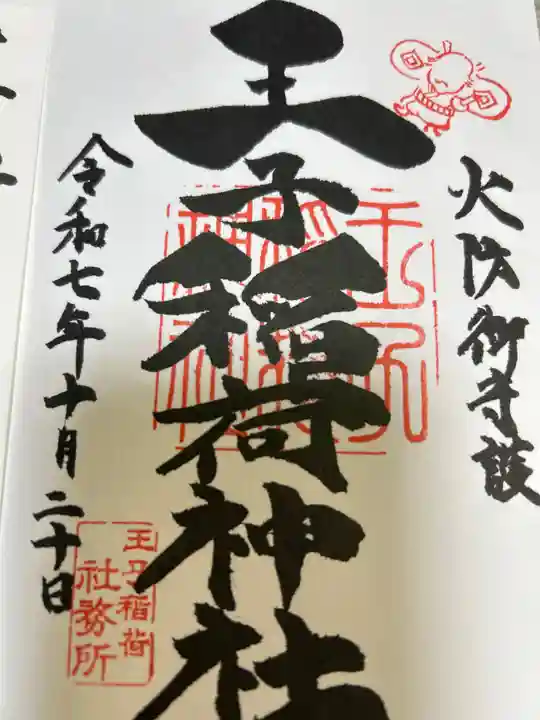 火防御守護
王子稲荷神社
令和七年十月二十日
王子稲荷
社務所